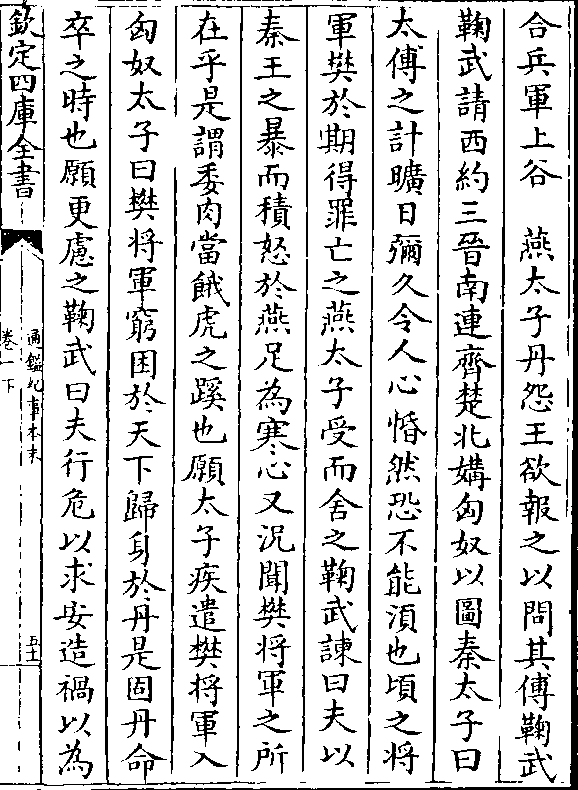 合兵軍上谷　燕太子丹怨王欲報之以問其傅鞠武
鞠武請西約三晉南連齊楚北媾匈奴以圖秦太子曰
太傅之計曠日彌久令人心惛然恐不能湏也頃之将
軍樊於期得罪亡之燕太子受而舍之鞠武諫曰夫以
秦王之暴而積怒於燕足為寒心又況聞樊将軍之所
在乎是謂委肉當餓虎之蹊也願太子疾遣樊将軍入
匈奴太子曰樊将軍窮困於天下歸身於丹是固丹命
卒之時也願更慮之鞠武曰夫行危以求安造禍以為
欽定四庫全書
通鑑紀事本末
卷一下
五十